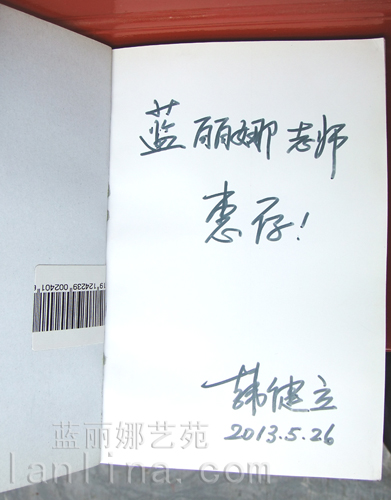 蓝丽娜老师
惠存!
韩健立
2013.5.26
19124239 002401
蓝丽娜艺苑
lanlina.com